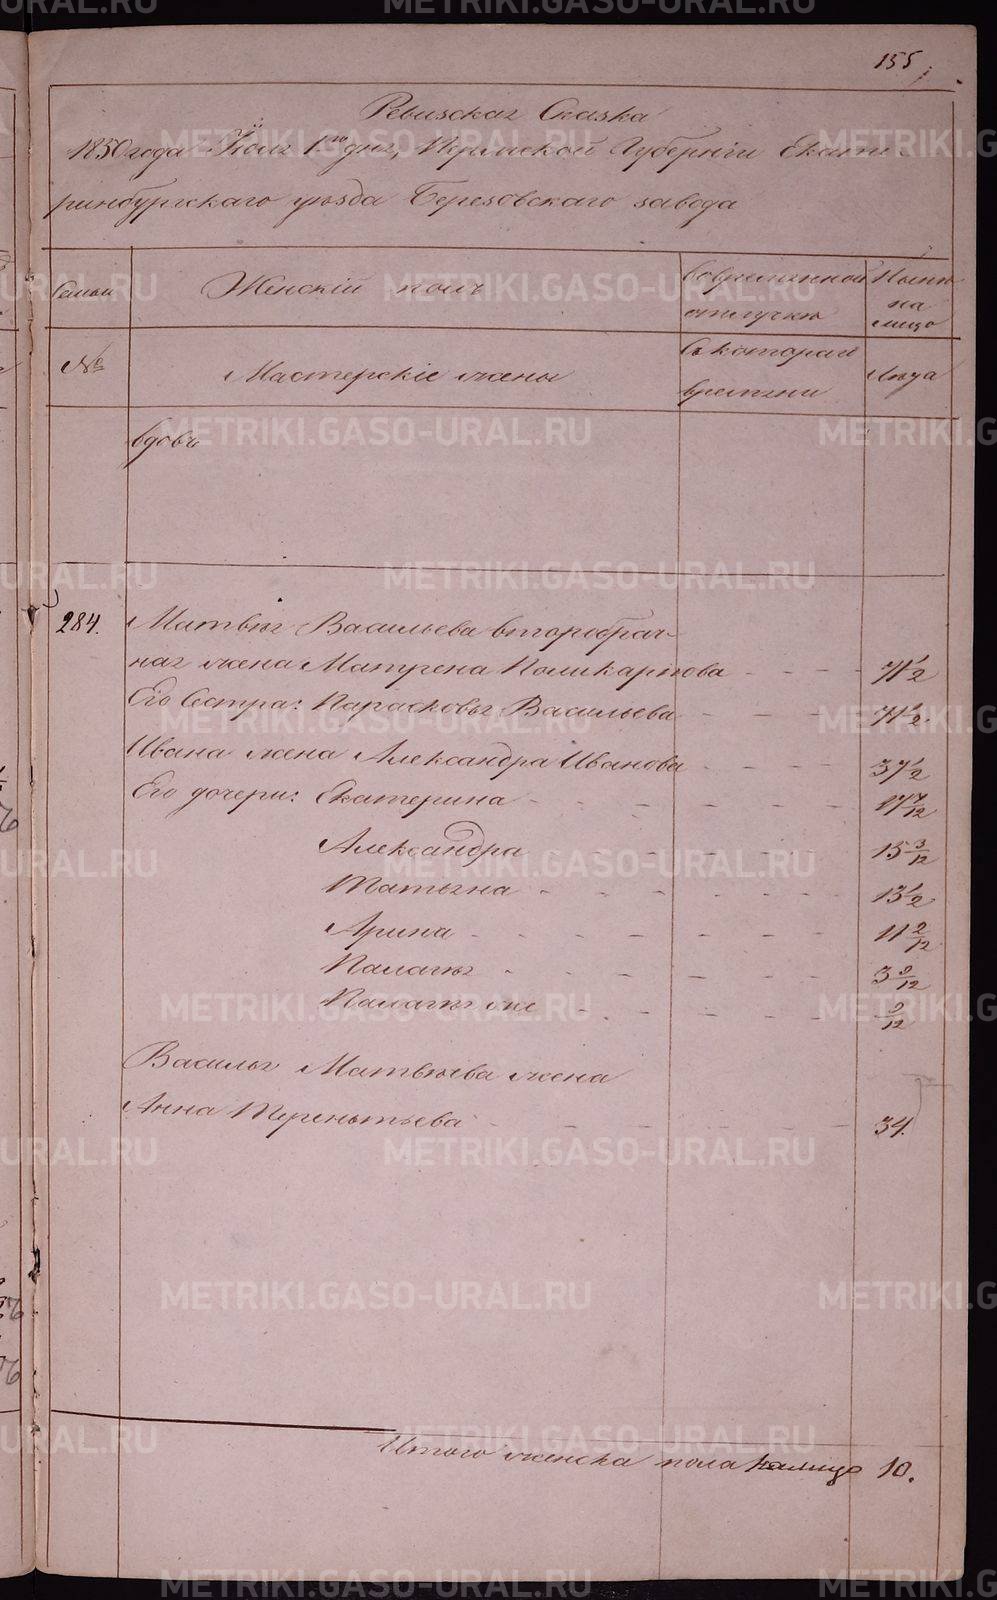 155
Ревизская Сказка
1850 года Июля 1го дня, Пермской Губернiи Екате-
ринбургскаго уѣзда Березовскаго завода
Семьи
Женскiй полъ
Во временной отлучкѣ
Нынѣ на лицо
№
Мастерскiе жены
Съ котораго времяни
Лѣта
вдовъ
284.
Матвѣя Васильева второбрач-
ная жена Матрена Поликарпова 71 1/2
Его Сестра: Парасковья Васильева 71 1/2
Ивана жена Александра Иванова 37 1/2
Его дочери: Екатерина 17 7/12
Александра 15 3/12
Татьяна 13 1/2
Арина 11 2/12
Палагѣя 3 9/12
Палагѣя же 9/12
Василья Матвѣева жена
Анна Терентьева 34.
Итого женска пола налицо 10.
METRIKI.GASO-URAL.RU